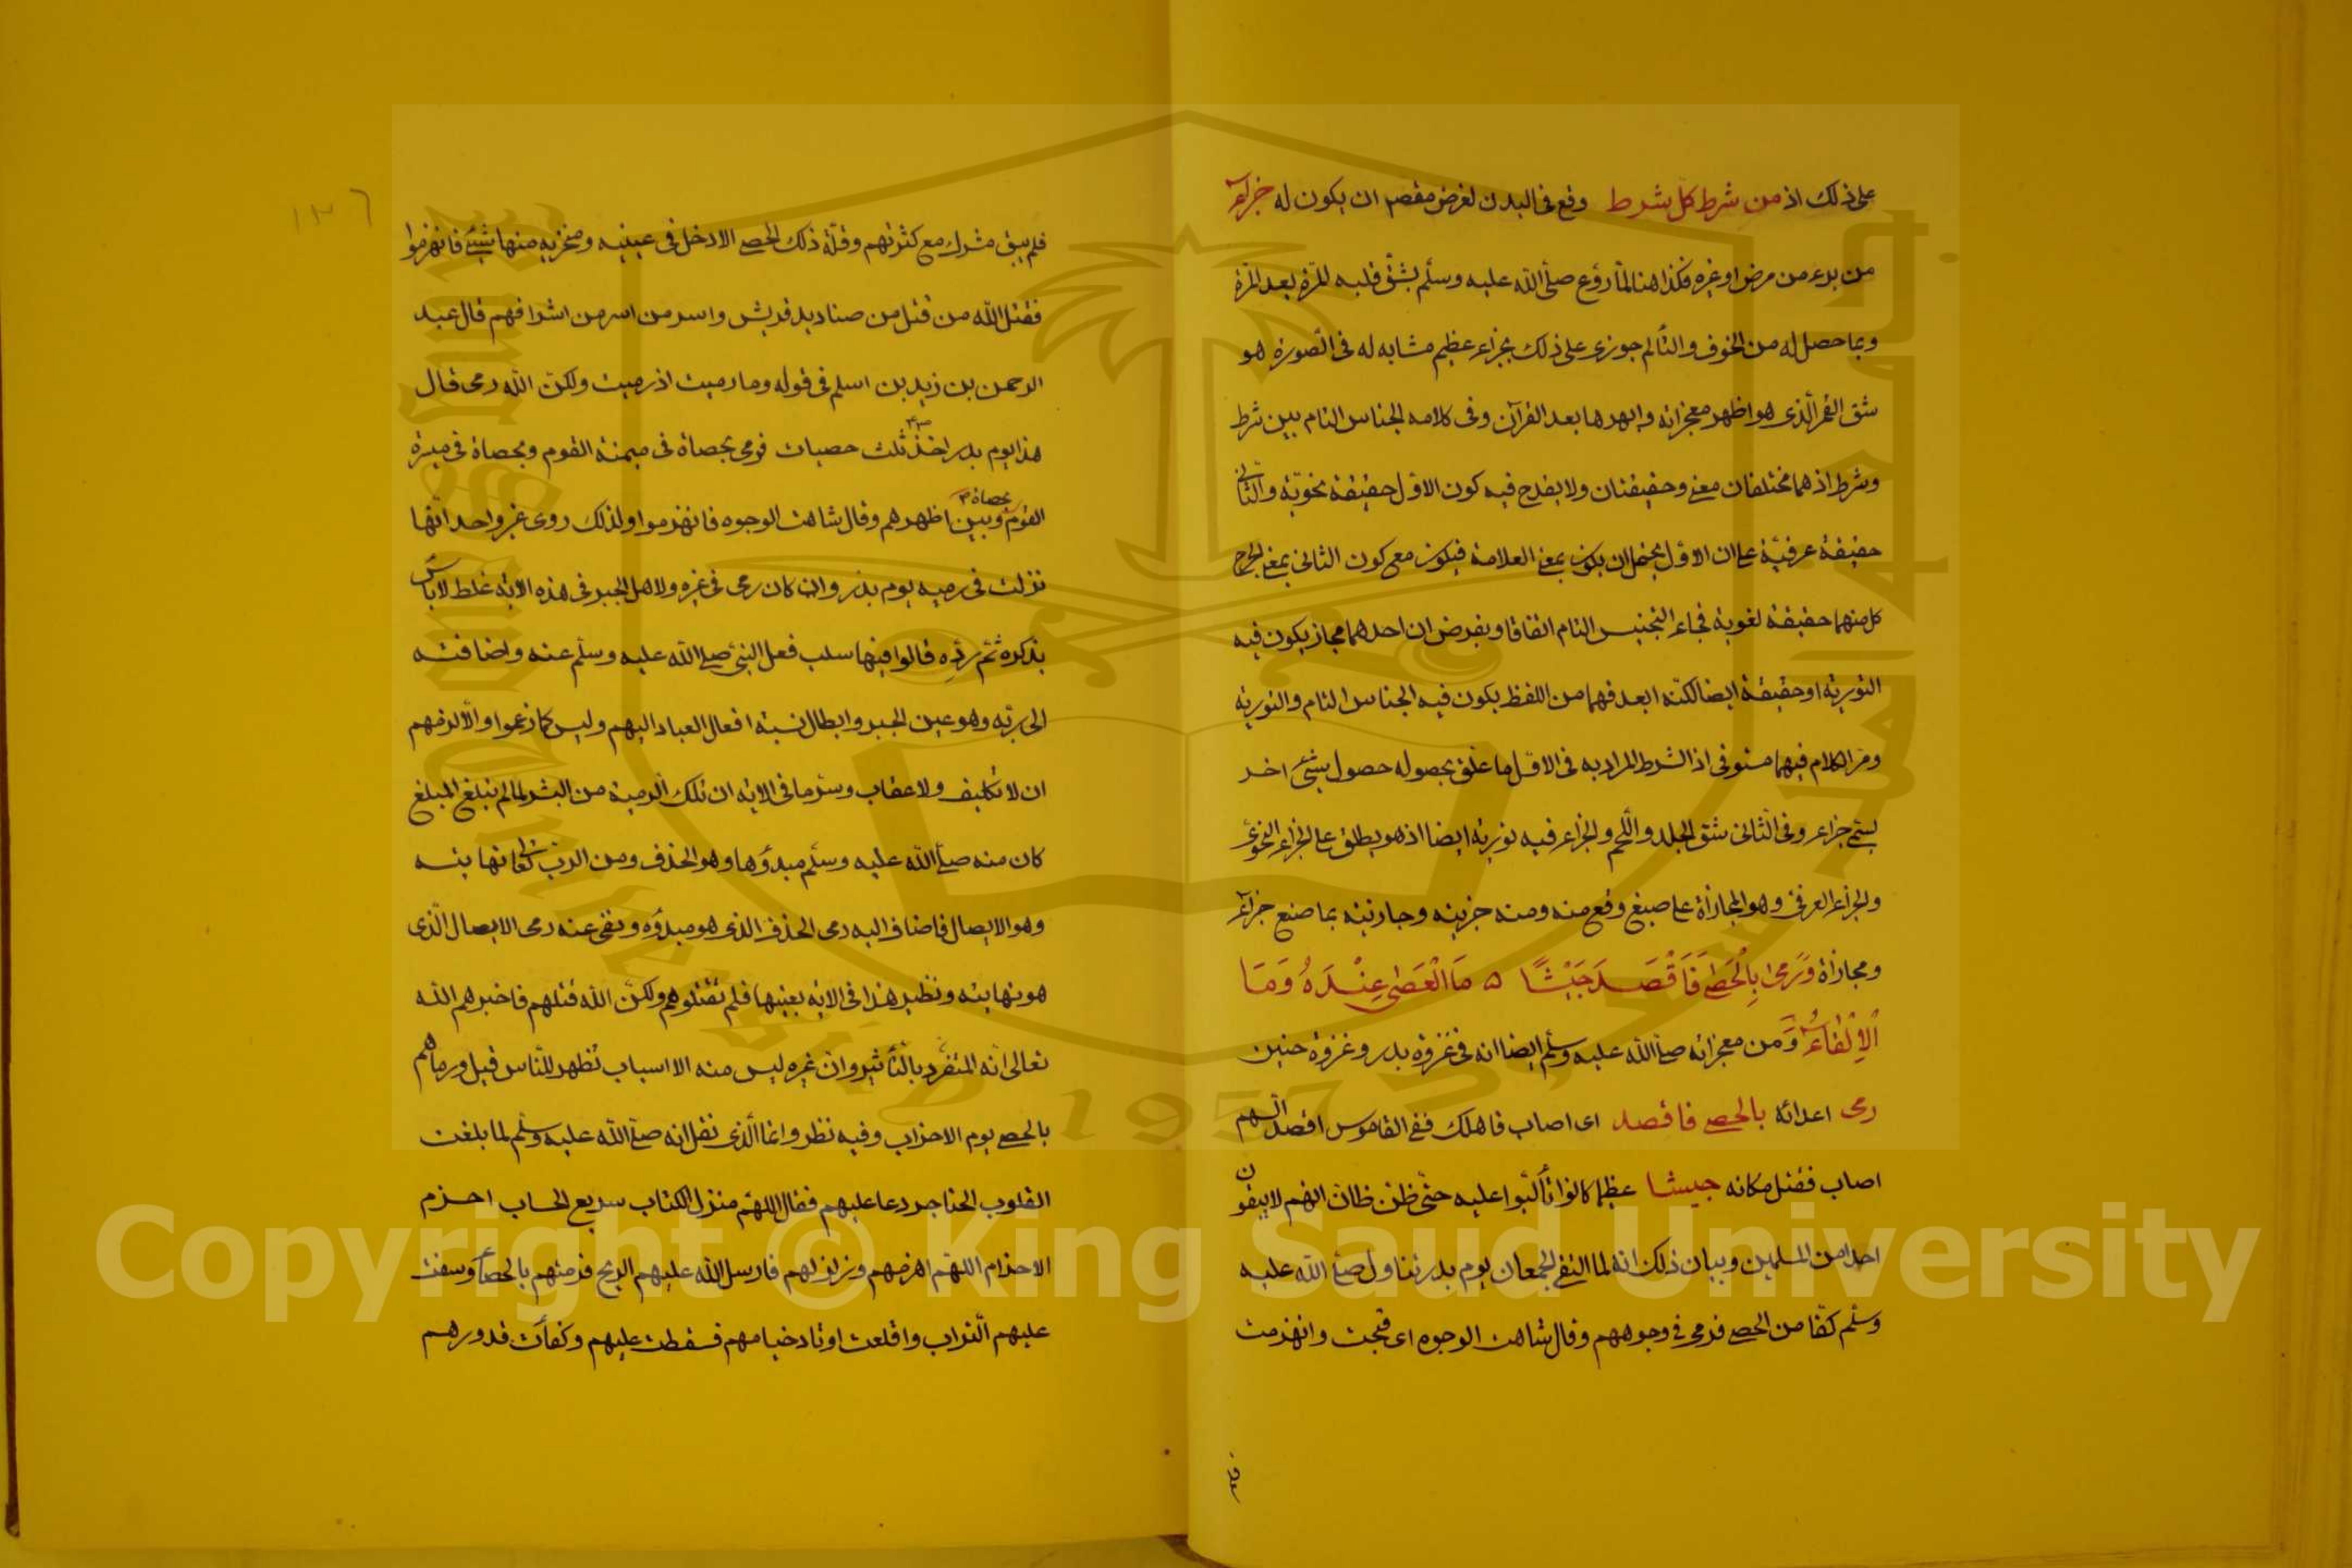 على ذلك اذ من شرط كل شرط وقع فى البدن لغرض مقصد ان يكون له جزاء
من برء من مرض او غيره فكذا هنا لما روع صلى الله عليه وسلم بشق قلبه المرة بعد المرة
وبما حصل له من الخوف والتألم جوزى على ذلك بجزاء عظيم مشابه له فى الصورة هو
شق القمر الذى هو اظهر معجزاته وابهرها بعد القرآن وفى كلامه الجناس التام بين شرط
وشرط اذ هما مختلفان معنى وحقيقتان ولا يقدح فيه كون الاول حقيقة نحوية والثانى
حقيقة عرفية على ان الاول يحتمل ان يكون بمعنى العلامة فيكون مع كون الثانى بمعنى الجرح
كل منهما حقيقة لغوية فجاء التجنيس التام اتفاقا وبفرض ان احدهما مجاز يكون فيه
التورية او حقيقة ايضا لكنه ابعد فهما من اللفظ يكون فيه الجناس التام والتورية
ومر الكلام فيهما مستوفى اذ الشرط المراد به فى الاول ما علق بحصوله حصول شئ اخر
يسمى جزاء وفى الثانى شق الجلد واللحم والجزاء فيه تورية ايضا اذ هو يطلق على الجزاء النحوى
والجزاء العرفى وهو المجازاة على صنيع وقع منه ومنه جزيته وجازيته بما صنع جزاء
ومجازاة وَرَمى بِالْحَصى فَاَقْصَدَ جَيْشًا ۵ مَا الْعَصى عِنْدَهُ وَمَا
الْاِلْقَاءُ وَمن معجزاته صلى الله عليه وسلم ايضا انه فى غزوة بدر وغزوة حنين
رمى اعدائه بالحصى فاقصد اى اصاب فاهلك ففى القاموس اقصد السهم
اصاب فقتل مكانه جيشا عظيما كانوا تألبوا عليه حتى ظن ظان انهم لا يبقون
احدا من المسلمين وبيان ذلك انه لما التقى الجمعان يوم بدر تناول صلى الله عليه
وسلم كفا من الحصى فرمى فى وجوههم وقال شاهت الوجوه اى قبحت وانهزمت
١٣٦
فلم يبق مشرك مع كثرتهم وقلة ذلك الحصى الا دخل فى عينيه ومنخريه منها شئ فانهزموا
فقتل الله من قتل من صناديد قريش واسر من اسر من اشرافهم قال عبد
الرحمن بن زيد بن اسلم فى قوله وما رميت اذ رميت ولكن الله رمى قال
هذا يوم بدر اخذ ثلث حصيات فرمى بحصاة فى ميمنة القوم وبحصاة فى ميسرة
القوم وبحصاة بين اظهرهم وقال شاهت الوجوه فانهزموا ولذلك روى غير واحد انها
نزلت فى رميه يوم بدر وان كان رمى فى غيره ولاهل الجبر فى هذه الاية غلط لا باس
بذكره ثم رده قالوا فيها سلب فعل النبى صلى الله عليه وسلم عنه واضافته
الى ربه وهو عين الجبر وابطال نسبة افعال العباد اليهم وليس كما زعموا والا لزمهم
ان لا تكليف ولا عقاب وسر ما فى الاية ان تلك الرمية من البشر لما لم تبلغ المبلغ
كان منه صلى الله عليه وسلم مبدؤها وهو الحذف ومن الرب تعالى نهايته
وهو الايصال فاضاف اليه رمى الحذف الذى هو مبدؤه ونفى عنه رمى الايصال الذى
هو نهايته ونظير هذا فى الاية بعينها فلم تقتلوهم ولكن الله قتلهم فاخبرهم الله
تعالى انه المتفرد بالتأثير وان غيره ليس منه الا اسباب تظهر للناس قيل ورماهم
بالحصى يوم الاحزاب وفيه نظر وانما الذى نقل انه صلى الله عليه وسلم لما بلغت
القلوب الحناجر دعا عليهم فقال اللهم منزل الكتاب سريع الحساب احزم
الاحزام اللهم اهزمهم وزلزلهم فارسل الله عليهم الريح فرمتهم بالحصا وسفت
عليهم التراب واقلعت اوتاد خيامهم فسقطت عليهم وكفأت قدورهم
Copyright © King Saud University
King Saud University
1957